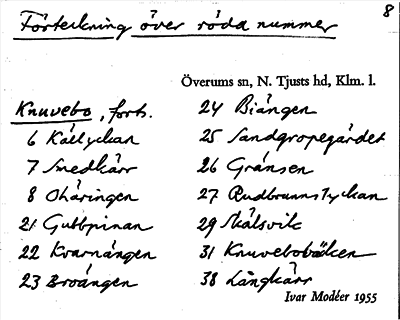 Förteckning över röda nummer
8
Överums sn, N. Tjusts hd, Klm. l.
Knuvebo, forts.
6 Kållyckan
7 Smedkärr
8 Ohäringen
21 Gubbpinan
22 Kvarnängen
23 Broängen
24 Biängen
25 Sandgropegärdet
26 Gränsen
27 Rudbrunnslyckan
29 Skälsvik
31 Knuvebobäcken
38 Långkärr
Ivar Modéer 1955